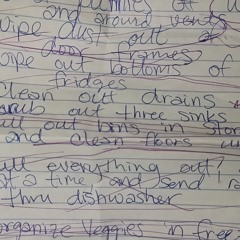 and around vents
wipe dust out of
door frames
wipe out bottoms of
fridges
clean out drains
scrub out three sinks
pull out bins in stor
and clean floors
pull everything out,
at a time and send
thru dishwasher
organize veggies in free